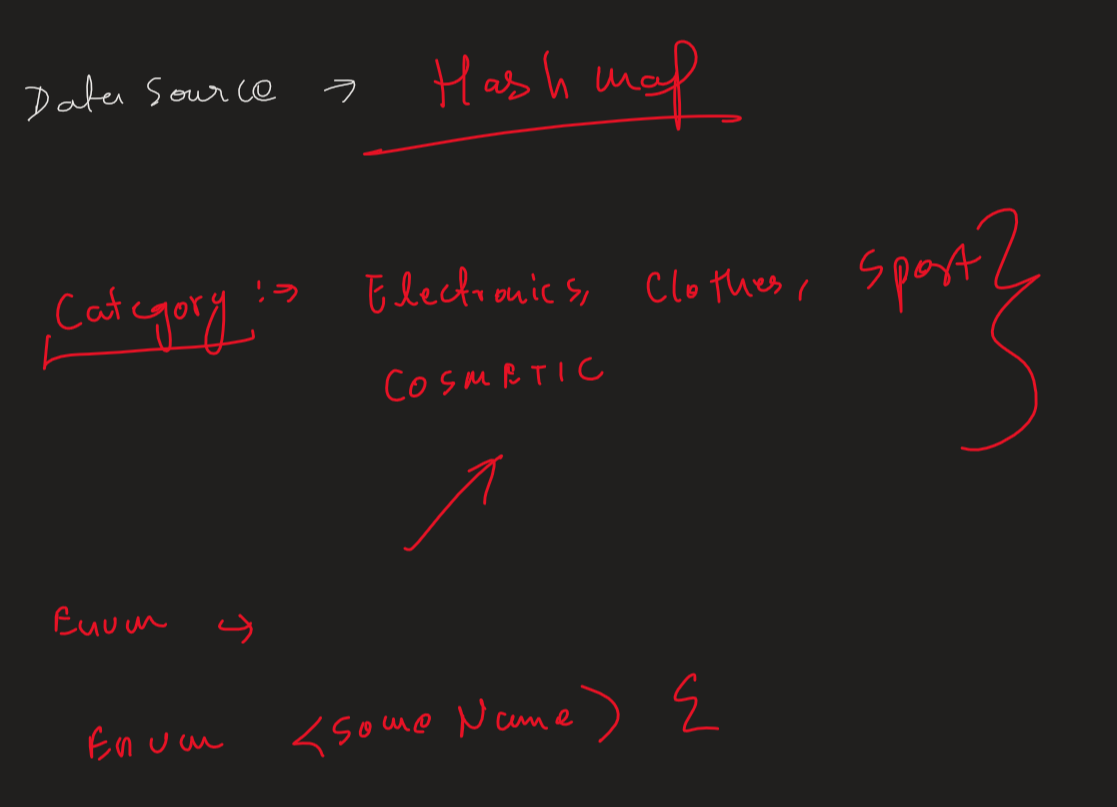 Data Source → Hash map
Category :→ Electronics, Clothes, Sport }
COSMETIC
Enum →
Enum <Some Name> {